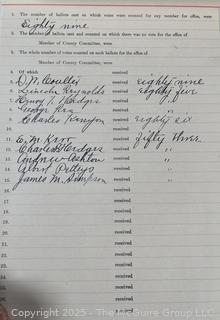 1. The number of ballots cast on which votes were counted for any number for office, were
Eighty nine
2. The number of ballots cast and counted on which there was no vote for the office of
Member of County Committee, were
3. The whole number of votes counted on such ballots for the office of
Member of County Committee, were
4. Of which
5. D. W. Coulter received eighty nine
6. Lincoln Reynolds received eighty five
7. Henry J. Hedges received "
8. George received "
9. Charles Kenyon received eighty six
10. received "
11. E. M. Kerr received fifty three
12. Charles Hedges received "
13. Andrew Ashton received "
14. Albert Pettys received "
15. James M. Simpson received "
16. received
17. received
18. received
19. received
20. received
21. received
22. received
23. received
24. received
25. received
26. received
Copyright 2025 - The McGuire Group LLC